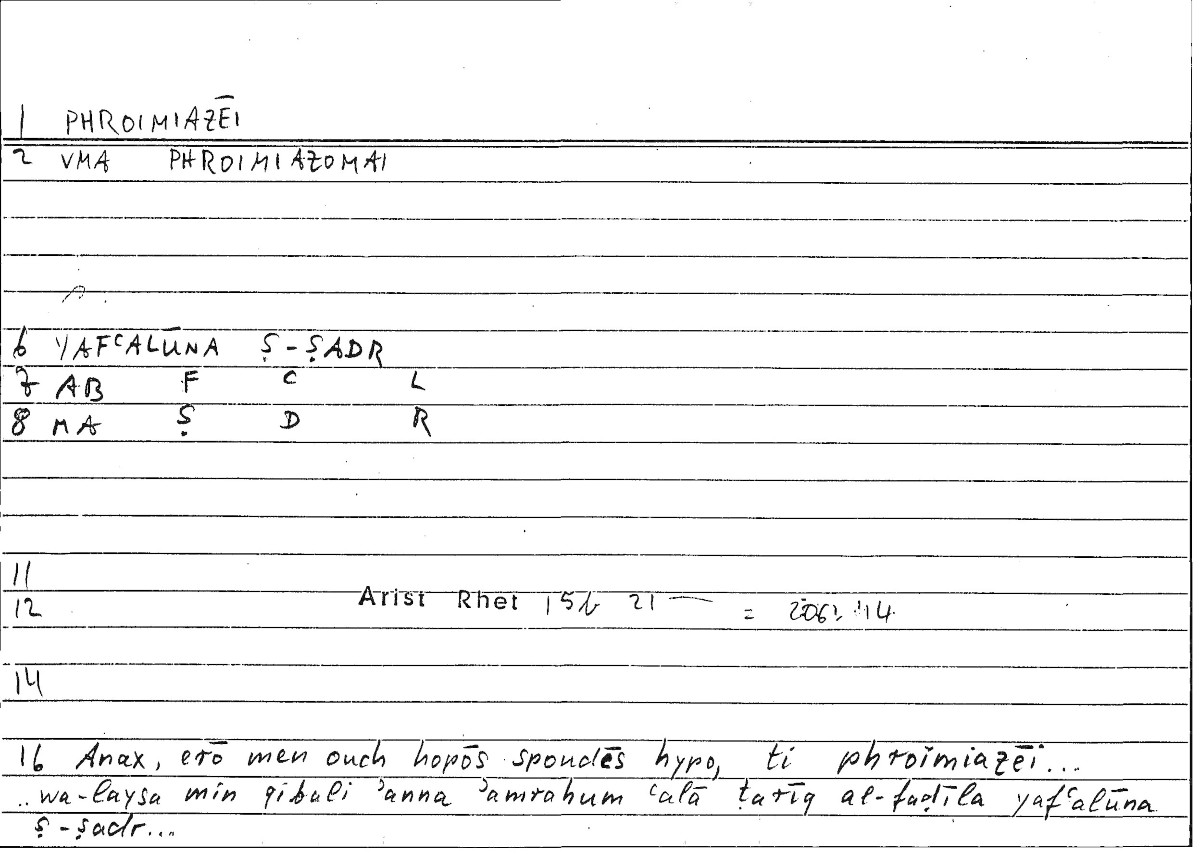 1 PHROIMIAZĒI
2 VMA PHROIMIAZOMAI
6 YAFᶜALŪNA Ṣ-ṢADR
7 AB F ᶜ L
8 MA Ṣ D R
11
12 Arist Rhet 15b 21 =
14
16 Anax, erō men ouch hopōs spoudēs hypo, ti phroimiazēi...
..wa-laysa min qibali ʾanna ʾamrahum ᶜalā ṭarīq al-faḍīla yafᶜalūna
ṣ-ṣadr...